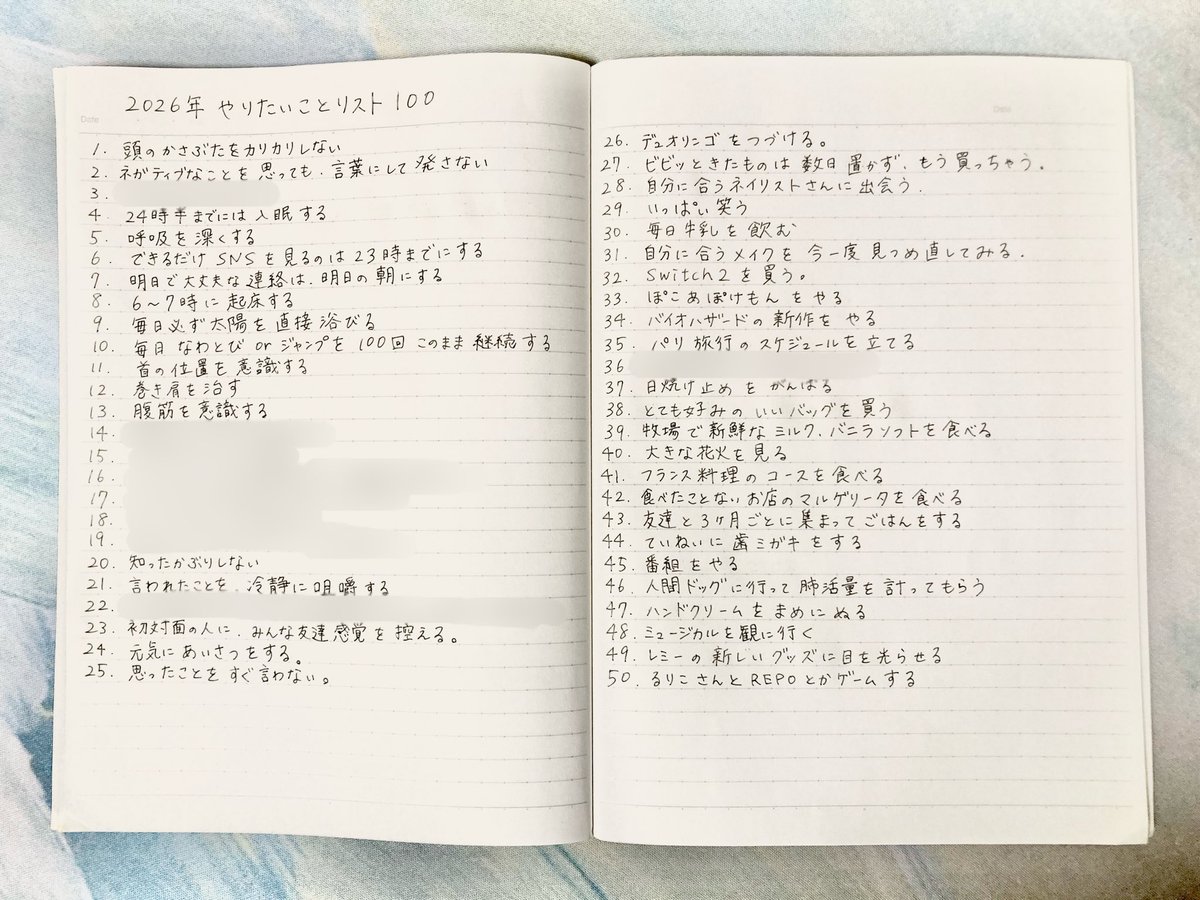 Date
2026年 やりたいことリスト 100
1. 頭のかさぶたをカリカリしない
2. ネガティブなことを思っても、言葉にして発さない
3.
4. 24時半までには入眠する
5. 呼吸を深くする
6. できるだけSNSを見るのは23時までにする
7. 明日で大丈夫な連絡は、明日の朝にする
8. 6〜7時に起床する
9. 毎日必ず太陽を直接浴びる
10. 毎日 なわとび or ジャンプを 100回 このまま継続する
11. 首の位置を意識する
12. 巻き肩を治す
13. 腹筋を意識する
14.
15.
16.
17.
18.
19.
20. 知ったかぶりしない
21. 言われたことを、冷静に咀嚼する
22.
23. 初対面の人に、みんな友達感覚を控える。
24. 元気にあいさつをする。
25. 思ったことをすぐ言わない。
Date
26. デュオリンゴをつづける。
27. ビビッときたものは数日置かず、もう買っちゃう.
28. 自分に合うネイリストさんに出会う.
29. いっぱい笑う
30. 毎日牛乳を飲む
31. 自分に合うメイクを今一度見つめ直してみる.
32. Switch2を買う。
33. ぽこあぽけもんをやる
34. バイオハザードの新作をやる
35. パリ旅行のスケジュールを立てる
36
37. 日焼け止めをがんばる
38. とても好みのいいバッグを買う
39. 牧場で新鮮なミルク、バニラソフトを食べる
40. 大きな花火を見る
41. フランス料理のコースを食べる
42. 食べたことないお店のマルゲリータを食べる
43. 友達と3ヶ月ごとに集まってごはんをする
44. ていねいに歯ミガキをする
45. 番組をやる
46. 人間ドッグに行って肺活量を計ってもらう
47. ハンドクリームをまめにぬる
48. ミュージカルを観に行く
49. レミーの新しいグッズに目を光らせる
50. るりこさんとREPOとかゲームする